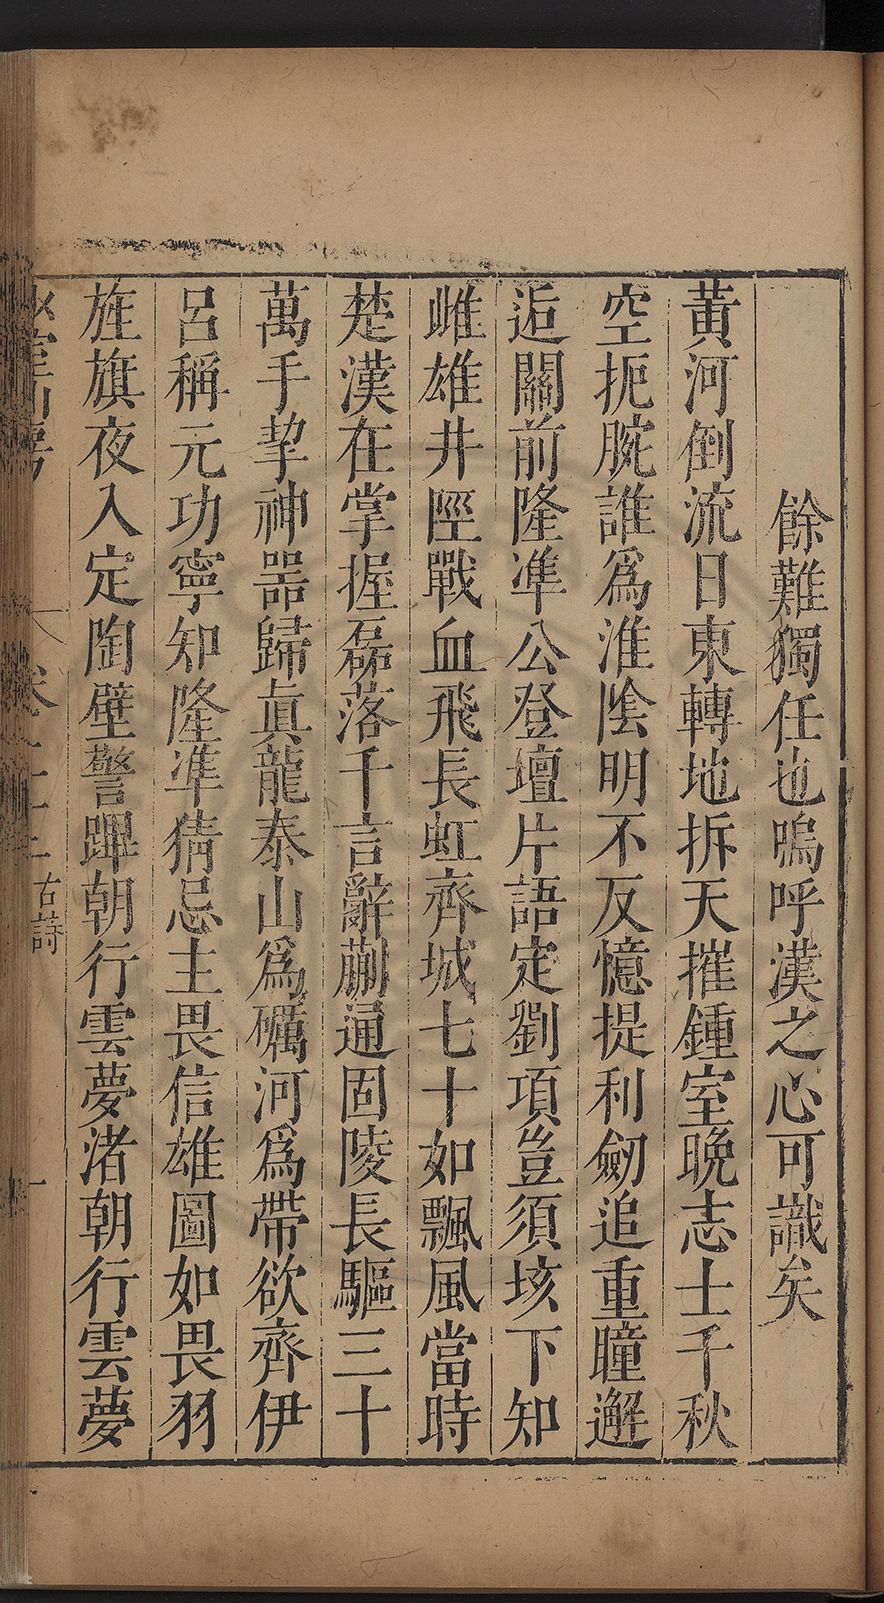 餘難獨任也嗚呼漢之心可識矣
黃河倒流日東轉地拆天摧鍾室晚志士千秋
空扼腕誰爲淮陰明不反憶提利劒追重瞳邂
逅關前隆準公登壇片語定劉項豈須垓下知
雌雄井陘戰血飛長虹齊城七十如飄風當時
楚漢在掌握磊落千言辭蒯通固陵長驅三十
萬手挈神器歸眞龍泰山爲礪河爲帶欲齊伊
呂稱元功寧知隆準猜忌主畏信雄圖如畏羽
旌旗夜入定陶壁警蹕朝行雲夢渚朝行雲夢
古詩